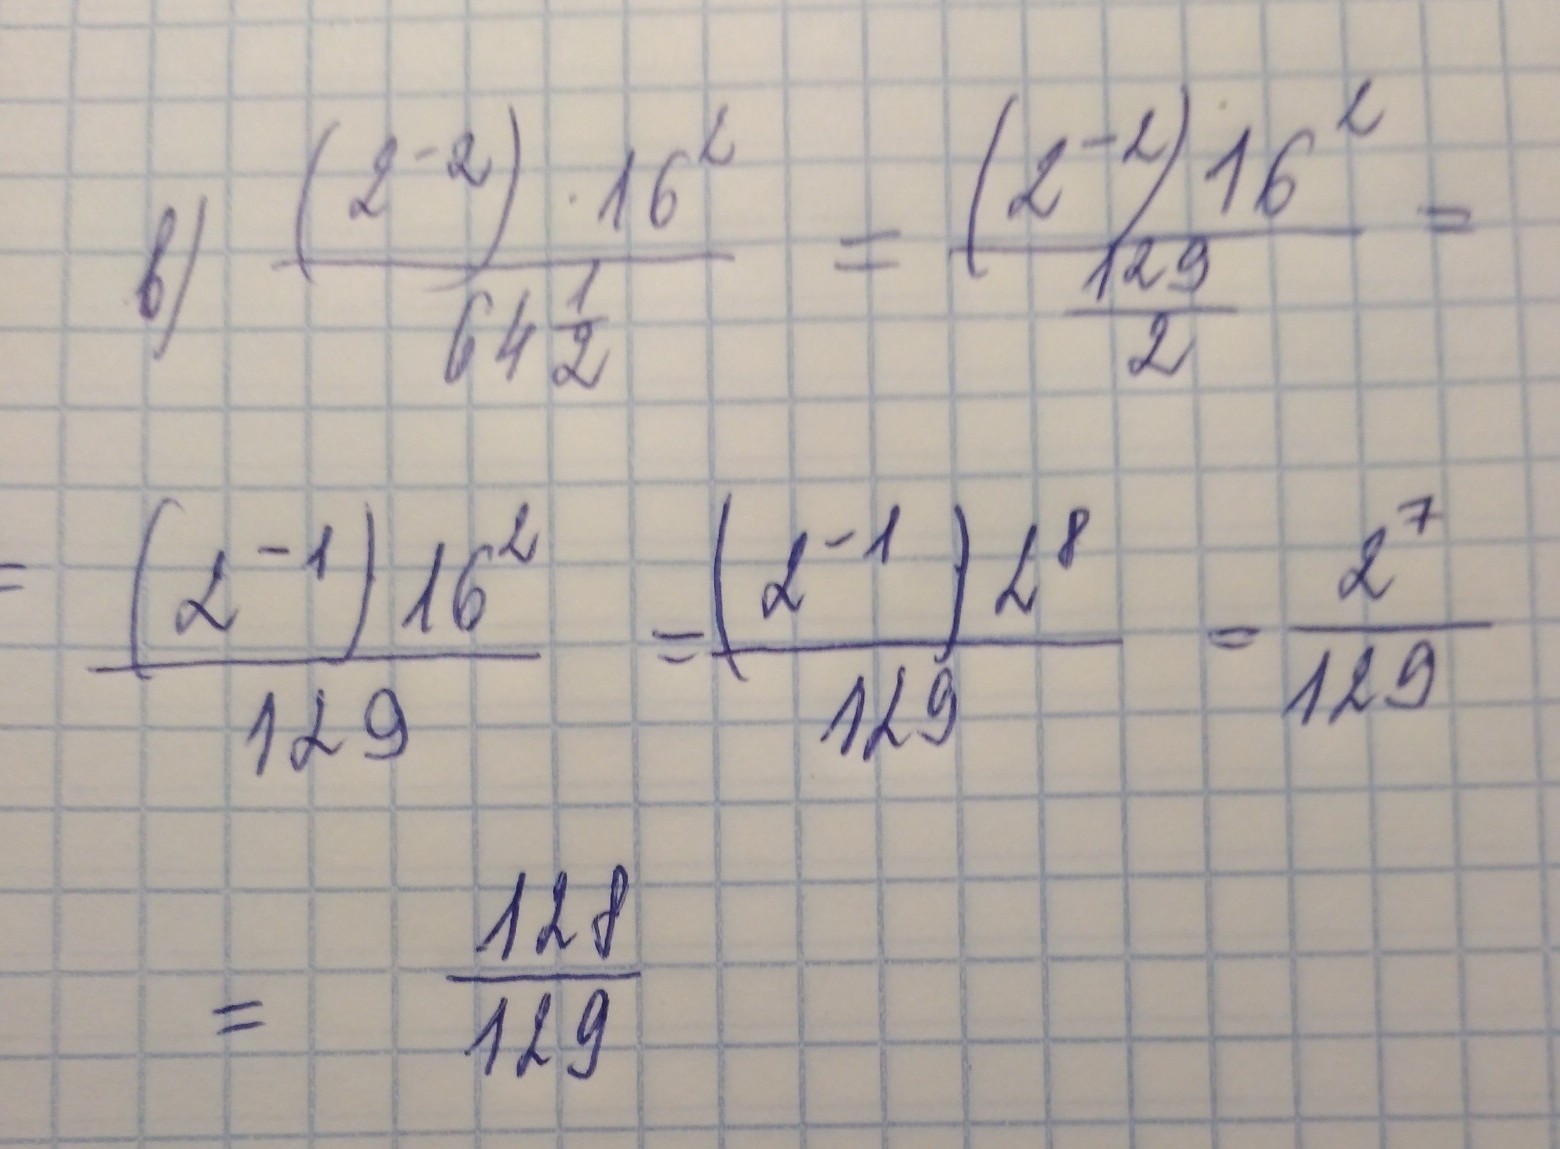 в) \frac{(2^{-2}) \cdot 16^2}{64\frac{1}{2}} = \frac{(2^{-2}) 16^2}{\frac{129}{2}} =
= \frac{(2^{-1}) 16^2}{129} = \frac{(2^{-1}) 2^8}{129} = \frac{2^7}{129}
= \frac{128}{129}